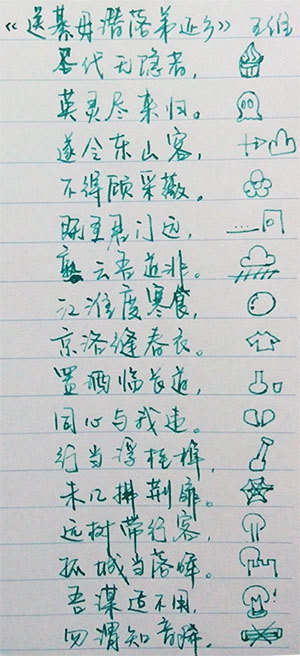 《送綦毋潜落第还乡》 王维
圣代无隐者，
英灵尽来归。
遂令东山客，
不得顾采薇。
既至君门远，
孰云吾道非。
江淮度寒食，
京洛缝春衣。
置酒临长道，
同心与我违。
行当浮桂棹，
未几拂荆扉。
远树带行客，
孤城当落晖。
吾谋适不用，
勿谓知音稀。